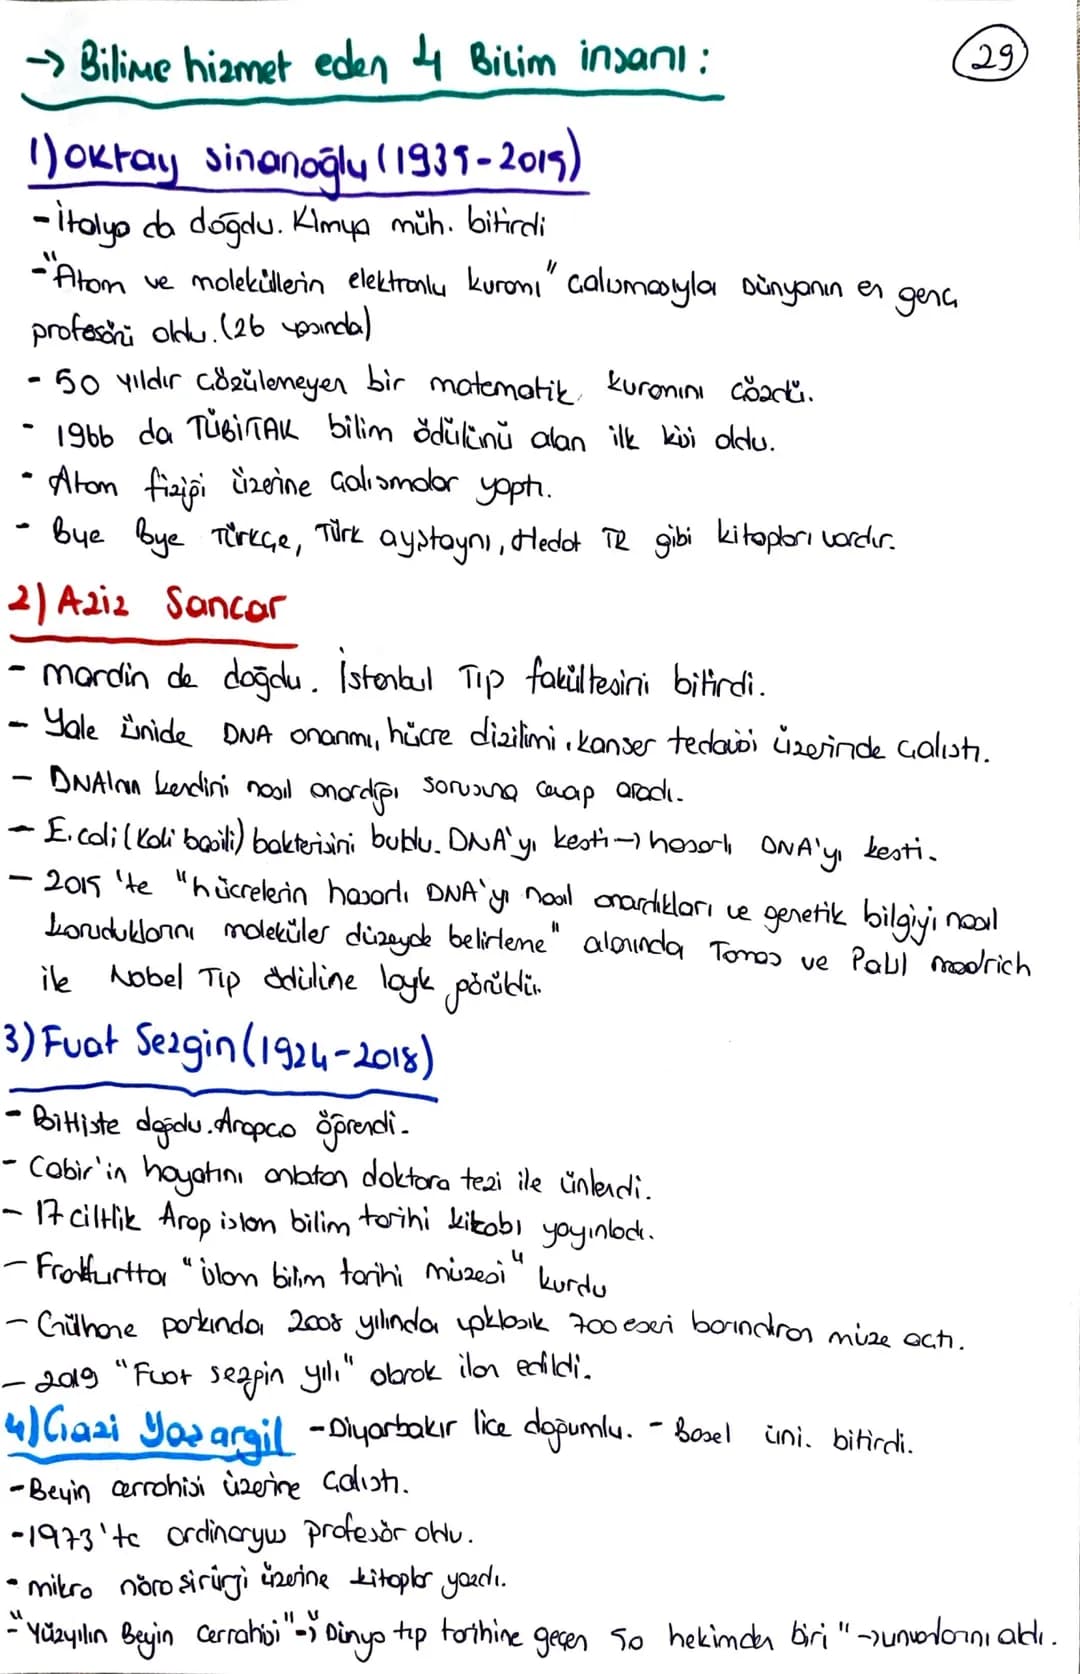 → Bilime hizmet eden 4 Bilim insanı :
29
1) Oktay Sinanoğlu (1935-2015)
- İtalya da doğdu. Kimya müh. bitirdi
- "Atom ve moleküllerin elektronlu kuramı" çalışmasıyla Dünyanın en genç
profesörü oldu. (26 yaşında)
- 50 yıldır çözülemeyen bir matematik kuramını çözdü.
- 1966 da TÜBİTAK bilim ödülünü alan ilk kişi oldu.
- Atom fiziği üzerine Çalışmalar yaptı.
- Bye Bye Türkçe, Türk aystaynı, Hedef TR gibi kitapları vardır.
2) Aziz Sancar
- mardin de doğdu. İstanbul Tıp fakültesini bitirdi.
- Yale ünide DNA onarımı, hücre dizilimi, kanser tedavisi üzerinde çalıştı.
- DNAlnın kendini nasıl onardığı sorusuna cevap aradı.
- E.coli (Koli basili) bakterisini buldu. DNA'yı kesti → hasarlı DNA'yı kesti.
- 2015 'te "hücrelerin hasarlı DNA'yı nasıl onardıkları ve genetik bilgiyi nasıl
koruduklarını moleküler düzeyde belirleme" alanında Tomas ve Paul modrich
ile Nobel Tıp ödülüne layık görüldü.
3) Fuat Sezgin (1924-2018)
- Bitliste doğdu. Arapça öğrendi.
- Cabir'in hayatını anlatan doktora tezi ile ünlendi.
- 17 ciltlik Arap islam bilim tarihi kitabı yayınladı.
- Frankfurtta "islam bilim tarihi müzesi" kurdu
- Gülhane parkında 2008 yılında yaklaşık 700 eseri barındıran müze açtı.
- 2019 "Fuat sezgin yılı" olarak ilan edildi.
4) Gazi Yaşargil - Diyarbakır lice doğumlu. - Basel üni. bitirdi.
- Beyin cerrahisi üzerine Çalıştı.
- 1973 'te ordinaryus profesör oldu.
- mikro nöro şirürji üzerine kitaplar yazdı.
- "Yüzyılın Beyin Cerrahisi" → "Dünya tıp tarihine geçen 50 hekimden biri" → unvanlarını aldı.